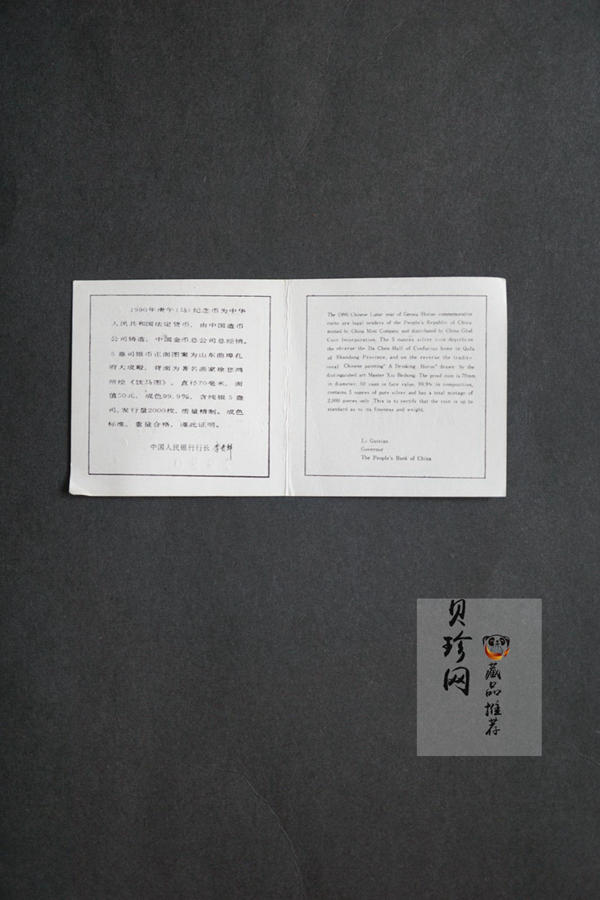 1990年庚午(马)纪念币为中华
人民共和国法定货币,由中国造币
公司铸造,中国金币总公司总经销。
5盎司银币正面图案为山东曲埠孔
府大成殿,背面为著名画家徐悲鸿
所绘《饮马图》。直径70毫米,面
值50元,成色99.9%,含纯银5盎
司,发行量2000枚,质量精制。成色
标准,重量合格,谨此证明。
中国人民银行行长 李贵鲜
The 1990 Chinese Lunar year of Gengu Horse commemorative
coins are legal tenders of the People's Republic of China
minted by China Mint Company and distributed by China Glod
Coin Incorporation. The 5 ounces silver coin depicts on
the obverse the Da Chen Hall of Confucius home in Qufu
of Shandong Province, and on the reverse the traditio-
nal Chinese painting" A Drinking Horse" drawn by the
distinguished art Master Xu Beihong. The proof coin is 70mm
in diameter, 50 yuan in face value, 99.9% in composition,
contains 5 ounces of pure silver and has a total mintage of
2,000 pieces only. This is to certify that the coin is up to
standard as to its fineness and weight.
Li Guixian
Governor
The People's Bank of China
贝珍网
藏品推荐